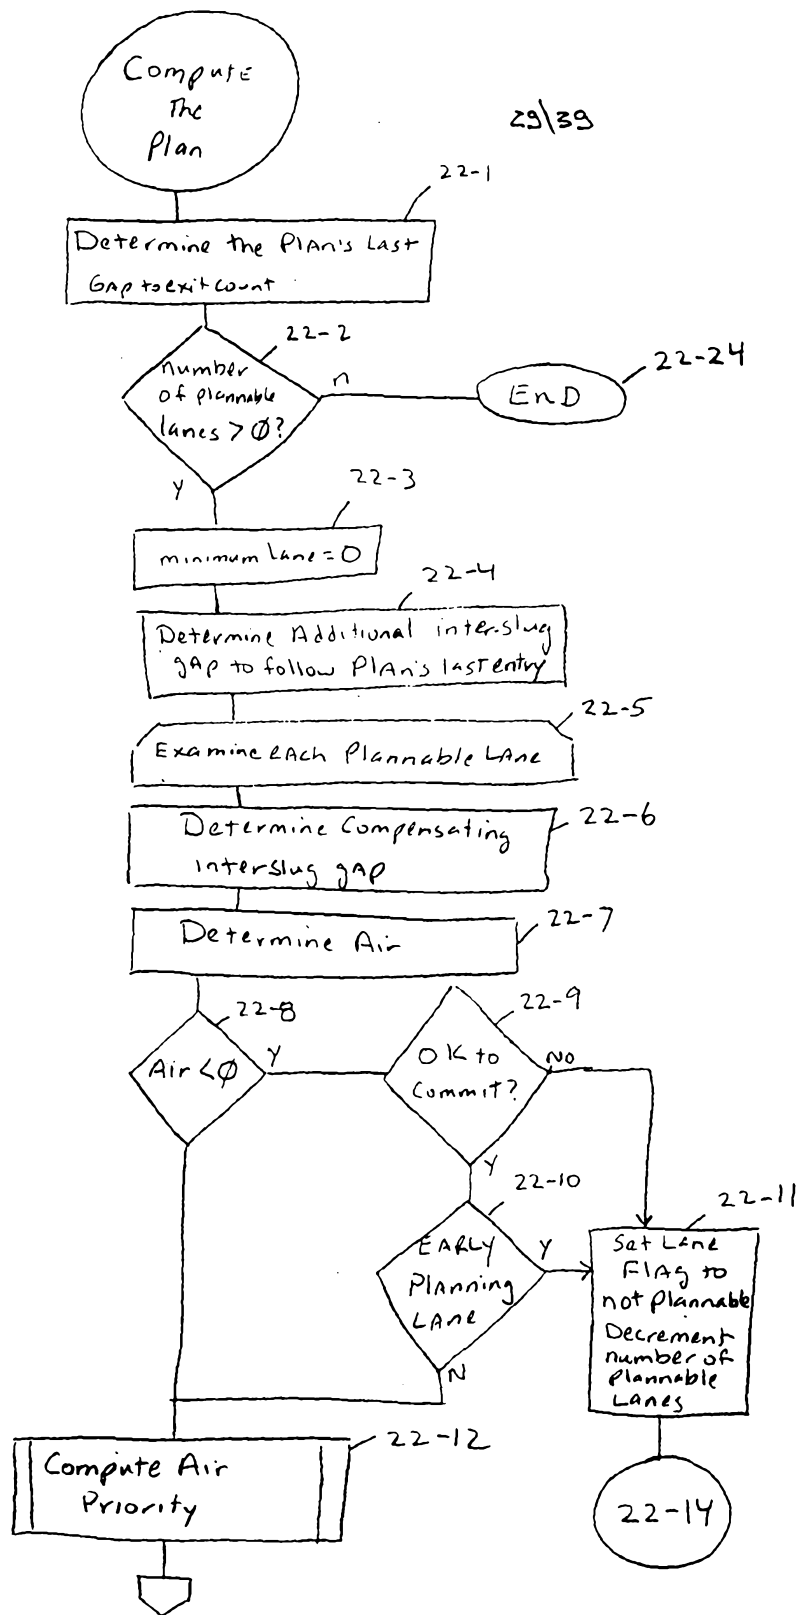 Compute
The
Plan
29\39
22-1
Determine the Plan's Last
Gap to exit count
22-2
number
of plannable
lanes > Ø?
n
EnD
22-24
Y
22-3
minimum Lane = 0
22-4
Determine Additional interslug
gap to follow Plan's last entry
22-5
Examine each Plannable Lane
22-6
Determine Compensating
interslug gap
22-7
Determine Air
22-8
Air < Ø
Y
22-9
OK to
Commit?
No
Y
22-10
EARLY
Planning
Lane
Y
N
22-11
Set Lane
Flag to
not Plannable
Decrement
number of
Plannable
Lanes
22-12
Compute Air
Priority
22-14